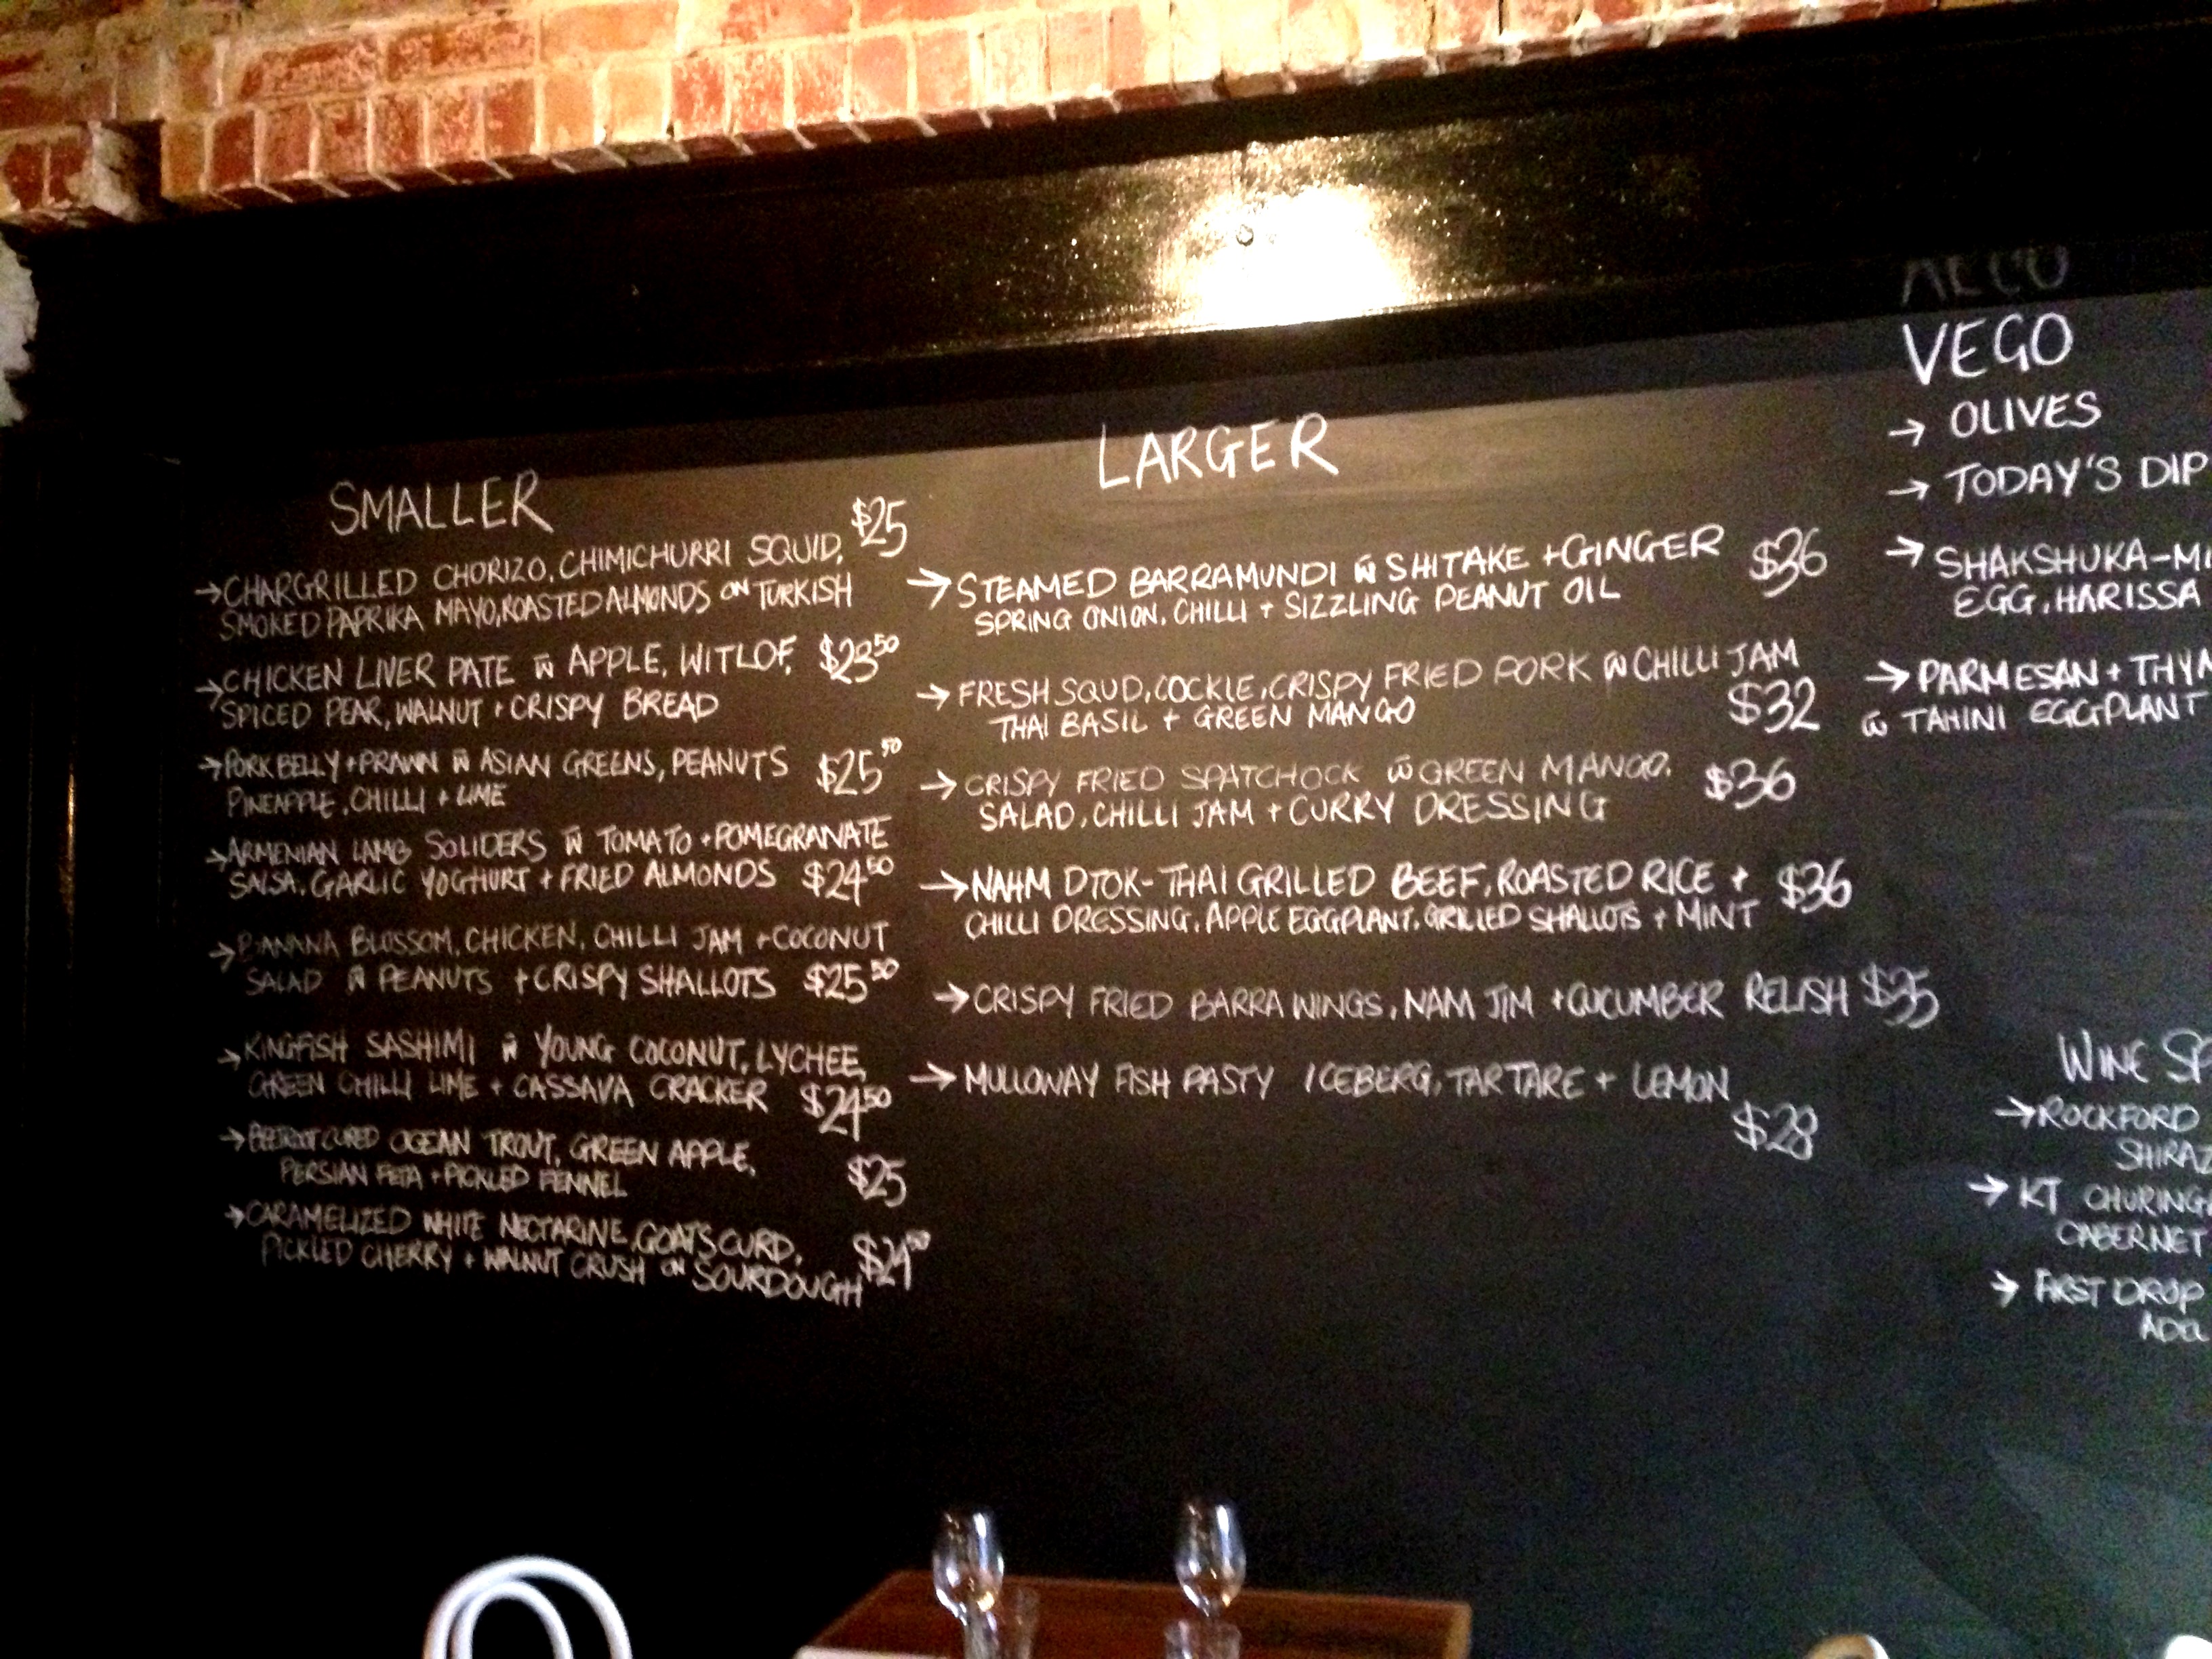 SMALLER
→CHARGRILLED CHORIZO, CHIMICHURRI SQUID, $25
SMOKED PAPRIKA MAYO, ROASTED ALMONDS ON TURKISH
→CHICKEN LIVER PATE W APPLE, WITLOF, $23⁵⁰
SPICED PEAR, WALNUT + CRISPY BREAD
→PORK BELLY + PRAWN W ASIAN GREENS, PEANUTS $25⁵⁰
PINEAPPLE, CHILLI + LIME
→ARMENIAN LAMB SOLIDERS W TOMATO + POMEGRANATE
SALSA, GARLIC YOGHURT + FRIED ALMONDS $24⁵⁰
→BANANA BLOSSOM, CHICKEN, CHILLI JAM + COCONUT
SALAD W PEANUTS + CRISPY SHALLOTS $25⁵⁰
→KINGFISH SASHIMI W YOUNG COCONUT, LYCHEE,
GREEN CHILLI LIME + CASSAVA CRACKER $24⁵⁰
→BEETROOT CURED OCEAN TROUT, GREEN APPLE,
PERSIAN FETA + PICKLED FENNEL $25
→CARAMELIZED WHITE NECTARINE, GOATS CURD,
PICKLED CHERRY + WALNUT CRUSH ON SOURDOUGH $24⁵⁰
LARGER
→STEAMED BARRAMUNDI W SHITAKE + GINGER $36
SPRING ONION, CHILLI + SIZZLING PEANUT OIL
→FRESH SQUD, COCKLE, CRISPY FRIED PORK W CHILLI JAM
THAI BASIL + GREEN MANGO $32
→CRISPY FRIED SPATCHOCK W GREEN MANGO. $36
SALAD, CHILLI JAM + CURRY DRESSING
→NAHM DTOK - THAI GRILLED BEEF, ROASTED RICE + $36
CHILLI DRESSING, APPLE EGGPLANT, GRILLED SHALLOTS + MINT
→CRISPY FRIED BARRA WINGS, NAM JIM + CUCUMBER RELISH $35
→MULLOWAY FISH PASTY ICEBERG, TARTARE + LEMON
$28
VEGO
→ OLIVES
→ TODAY'S DIP
→ SHAKSHUKA-
EGG, HARISSA
→PARMESAN +
W TAHINI EGGPLANT
WINE
→ROCKFORD
SHIRAZ
→KT
CABERNET
→ FIRST DROP